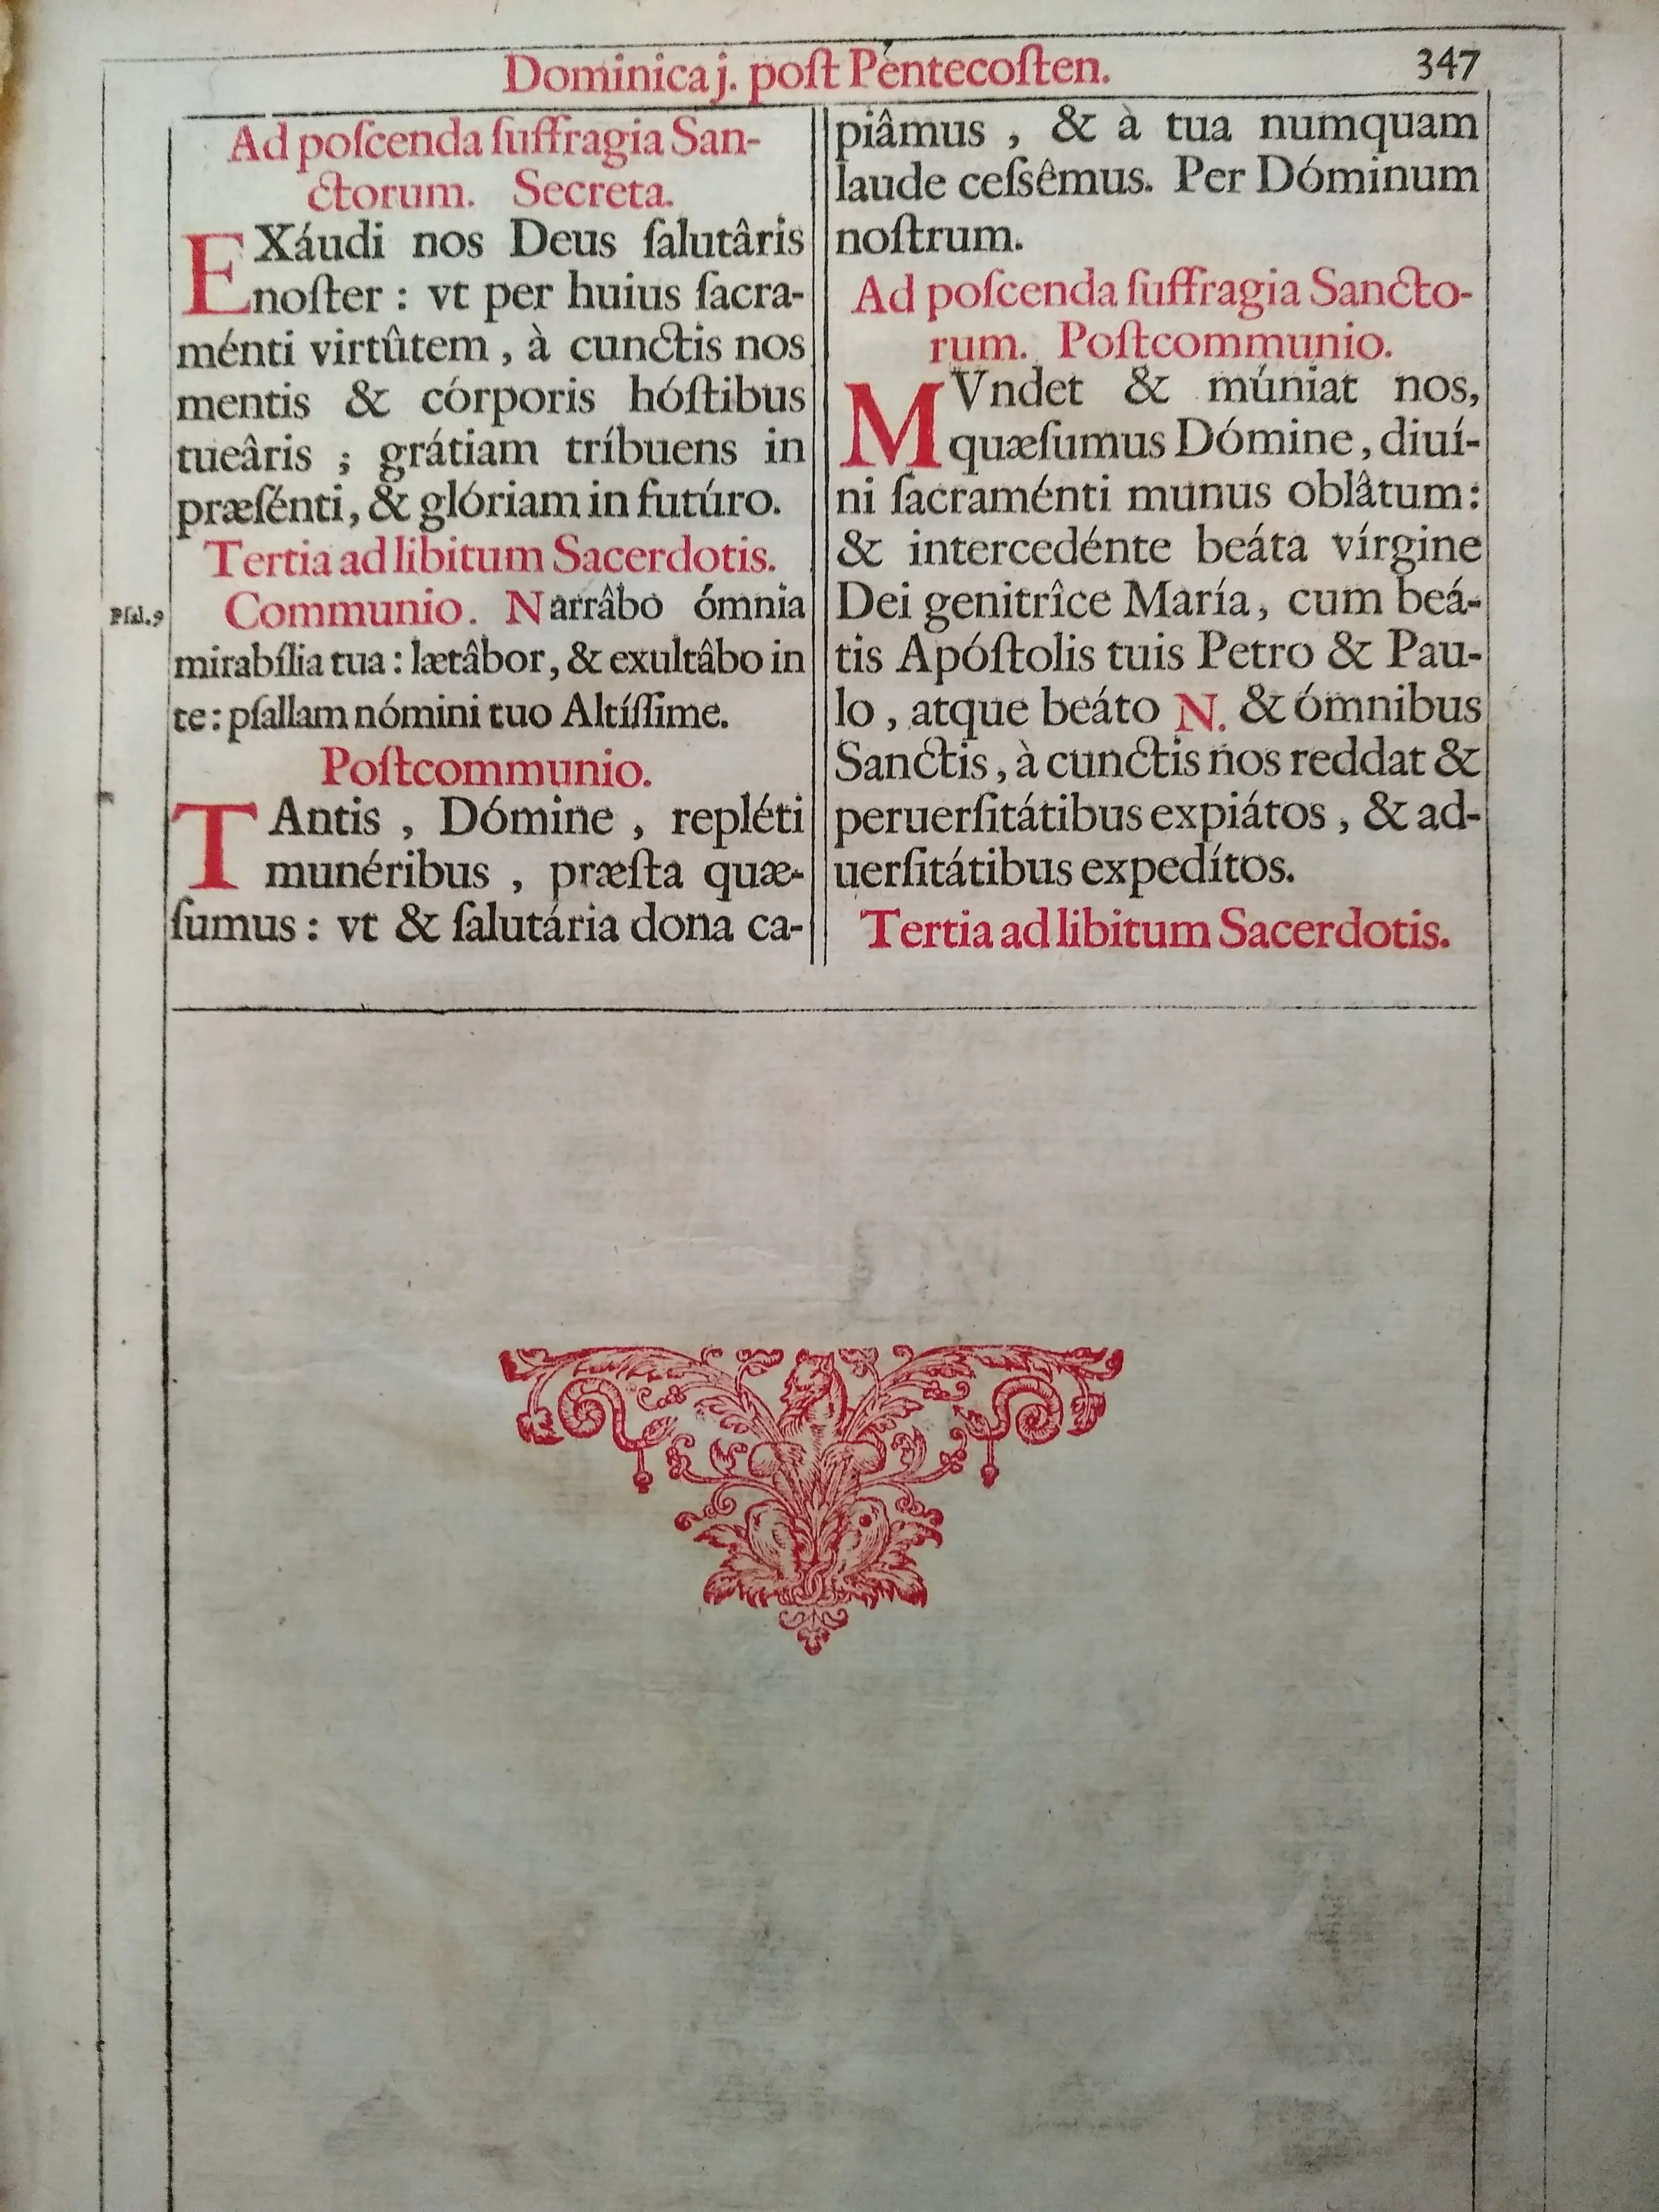 Dominica j. poſt Pentecoſten. 347
Ad poſcenda ſuffragia San-
ctorum. Secreta.
EXáudi nos Deus ſalutâris
noſter : vt per huius ſacra-
ménti virtûtem , à cunctis nos
mentis & córporis hóſtibus
tueâris ; grátiam tríbuens in
præſénti, & glóriam in futúro.
Tertia ad libitum Sacerdotis.
Pſal. 9
Communio. Narrâbo ómnia
mirabília tua : lætâbor, & exultâbo in
te : pſallam nómini tuo Altíſſime.
Poſtcommunio.
TAntis , Dómine , repléti
munéribus , præſta quæ-
ſumus : vt & ſalutária dona ca-
piâmus , & à tua numquam
laude ceſsêmus. Per Dóminum
noſtrum.
Ad poſcenda ſuffragia Sancto-
rum. Poſtcommunio.
MVndet & múniat nos,
quæſumus Dómine , diuí-
ni ſacraménti munus oblâtum:
& intercedénte beáta vírgine
Dei genitrîce María, cum beá-
tis Apóſtolis tuis Petro & Pau-
lo , atque beáto N. & ómnibus
Sanctis , à cunctis nos reddat &
peruerſitátibus expiátos , & ad-
uerſitátibus expedítos.
Tertia ad libitum Sacerdotis.